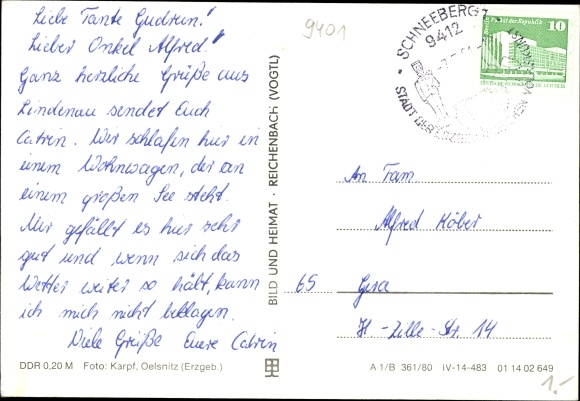 Liebe Tante Gudrun!
Lieber Onkel Alfred!
Ganz herzliche Grüße aus
Lindenau sendet Euch
Catrin. Wir schlafen hier in
einem Wohnwagen, der an
einem großen See steht.
Mir gefällt es hier sehr
gut und wenn sich das
Wetter weiter so hält, kann
ich mich nicht beklagen.
Viele Grüße Eure Catrin
DDR 0,20 M Foto: Karpf, Oelsnitz (Erzgeb.)
BILD UND HEIMAT · REICHENBACH (VOGTL)
9401
SCHNEEBERG 1
9412
STADT DER
10
An Fam
Alfred Köber
65 Gera
H.-Zille-Str. 14
A 1/B 361/80 IV-14-483 01 14 02 649
1.-